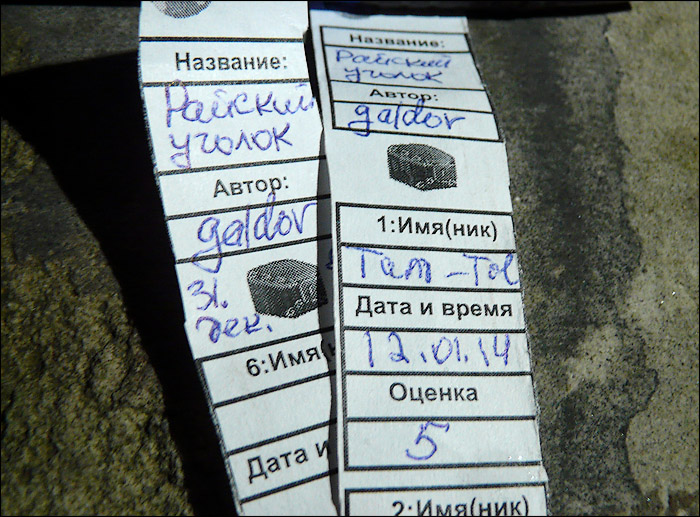 Название:
Райский
уголок
Автор:
galdor
31.
дек.
6:Имя(н
Дата и
Название:
Райский
уголок
Автор:
galdor
1:Имя(ник)
Tam-Tol
Дата и время
12.01.14
Оценка
5
2:Имя(ник)